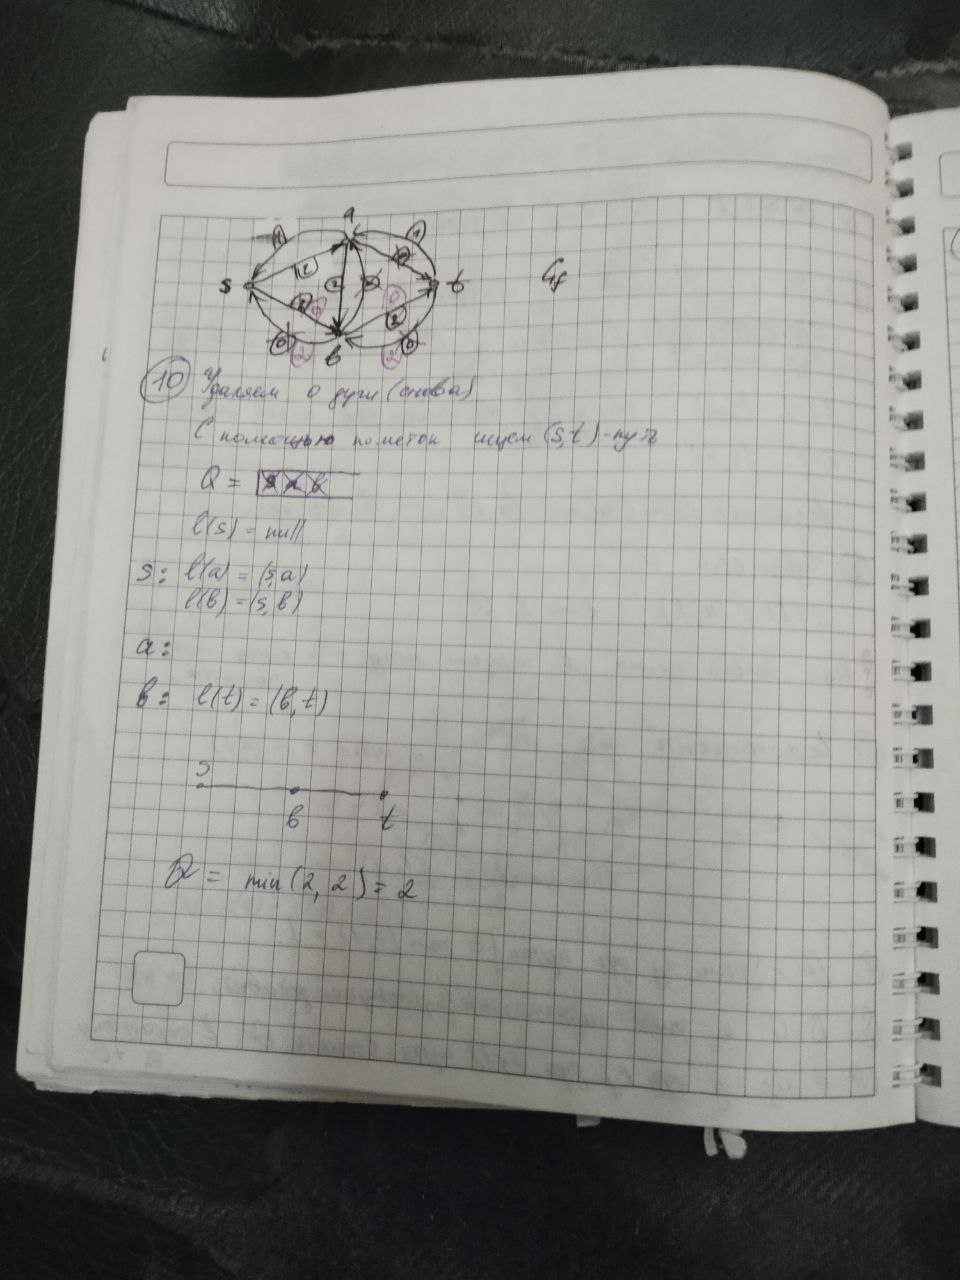 a
1 1
2 0
s t Gf
2 0 0
2
0 0
2 b 2
10 Удаляем 0 дуги (снова)
С помощью пометок ищем (s,t)-путь
Q = s a b
l(s) = null
s: l(a) = (s,a)
l(b) = (s,b)
a:
b: l(t) = (b,t)
s
b t
Q = min(2, 2) = 2